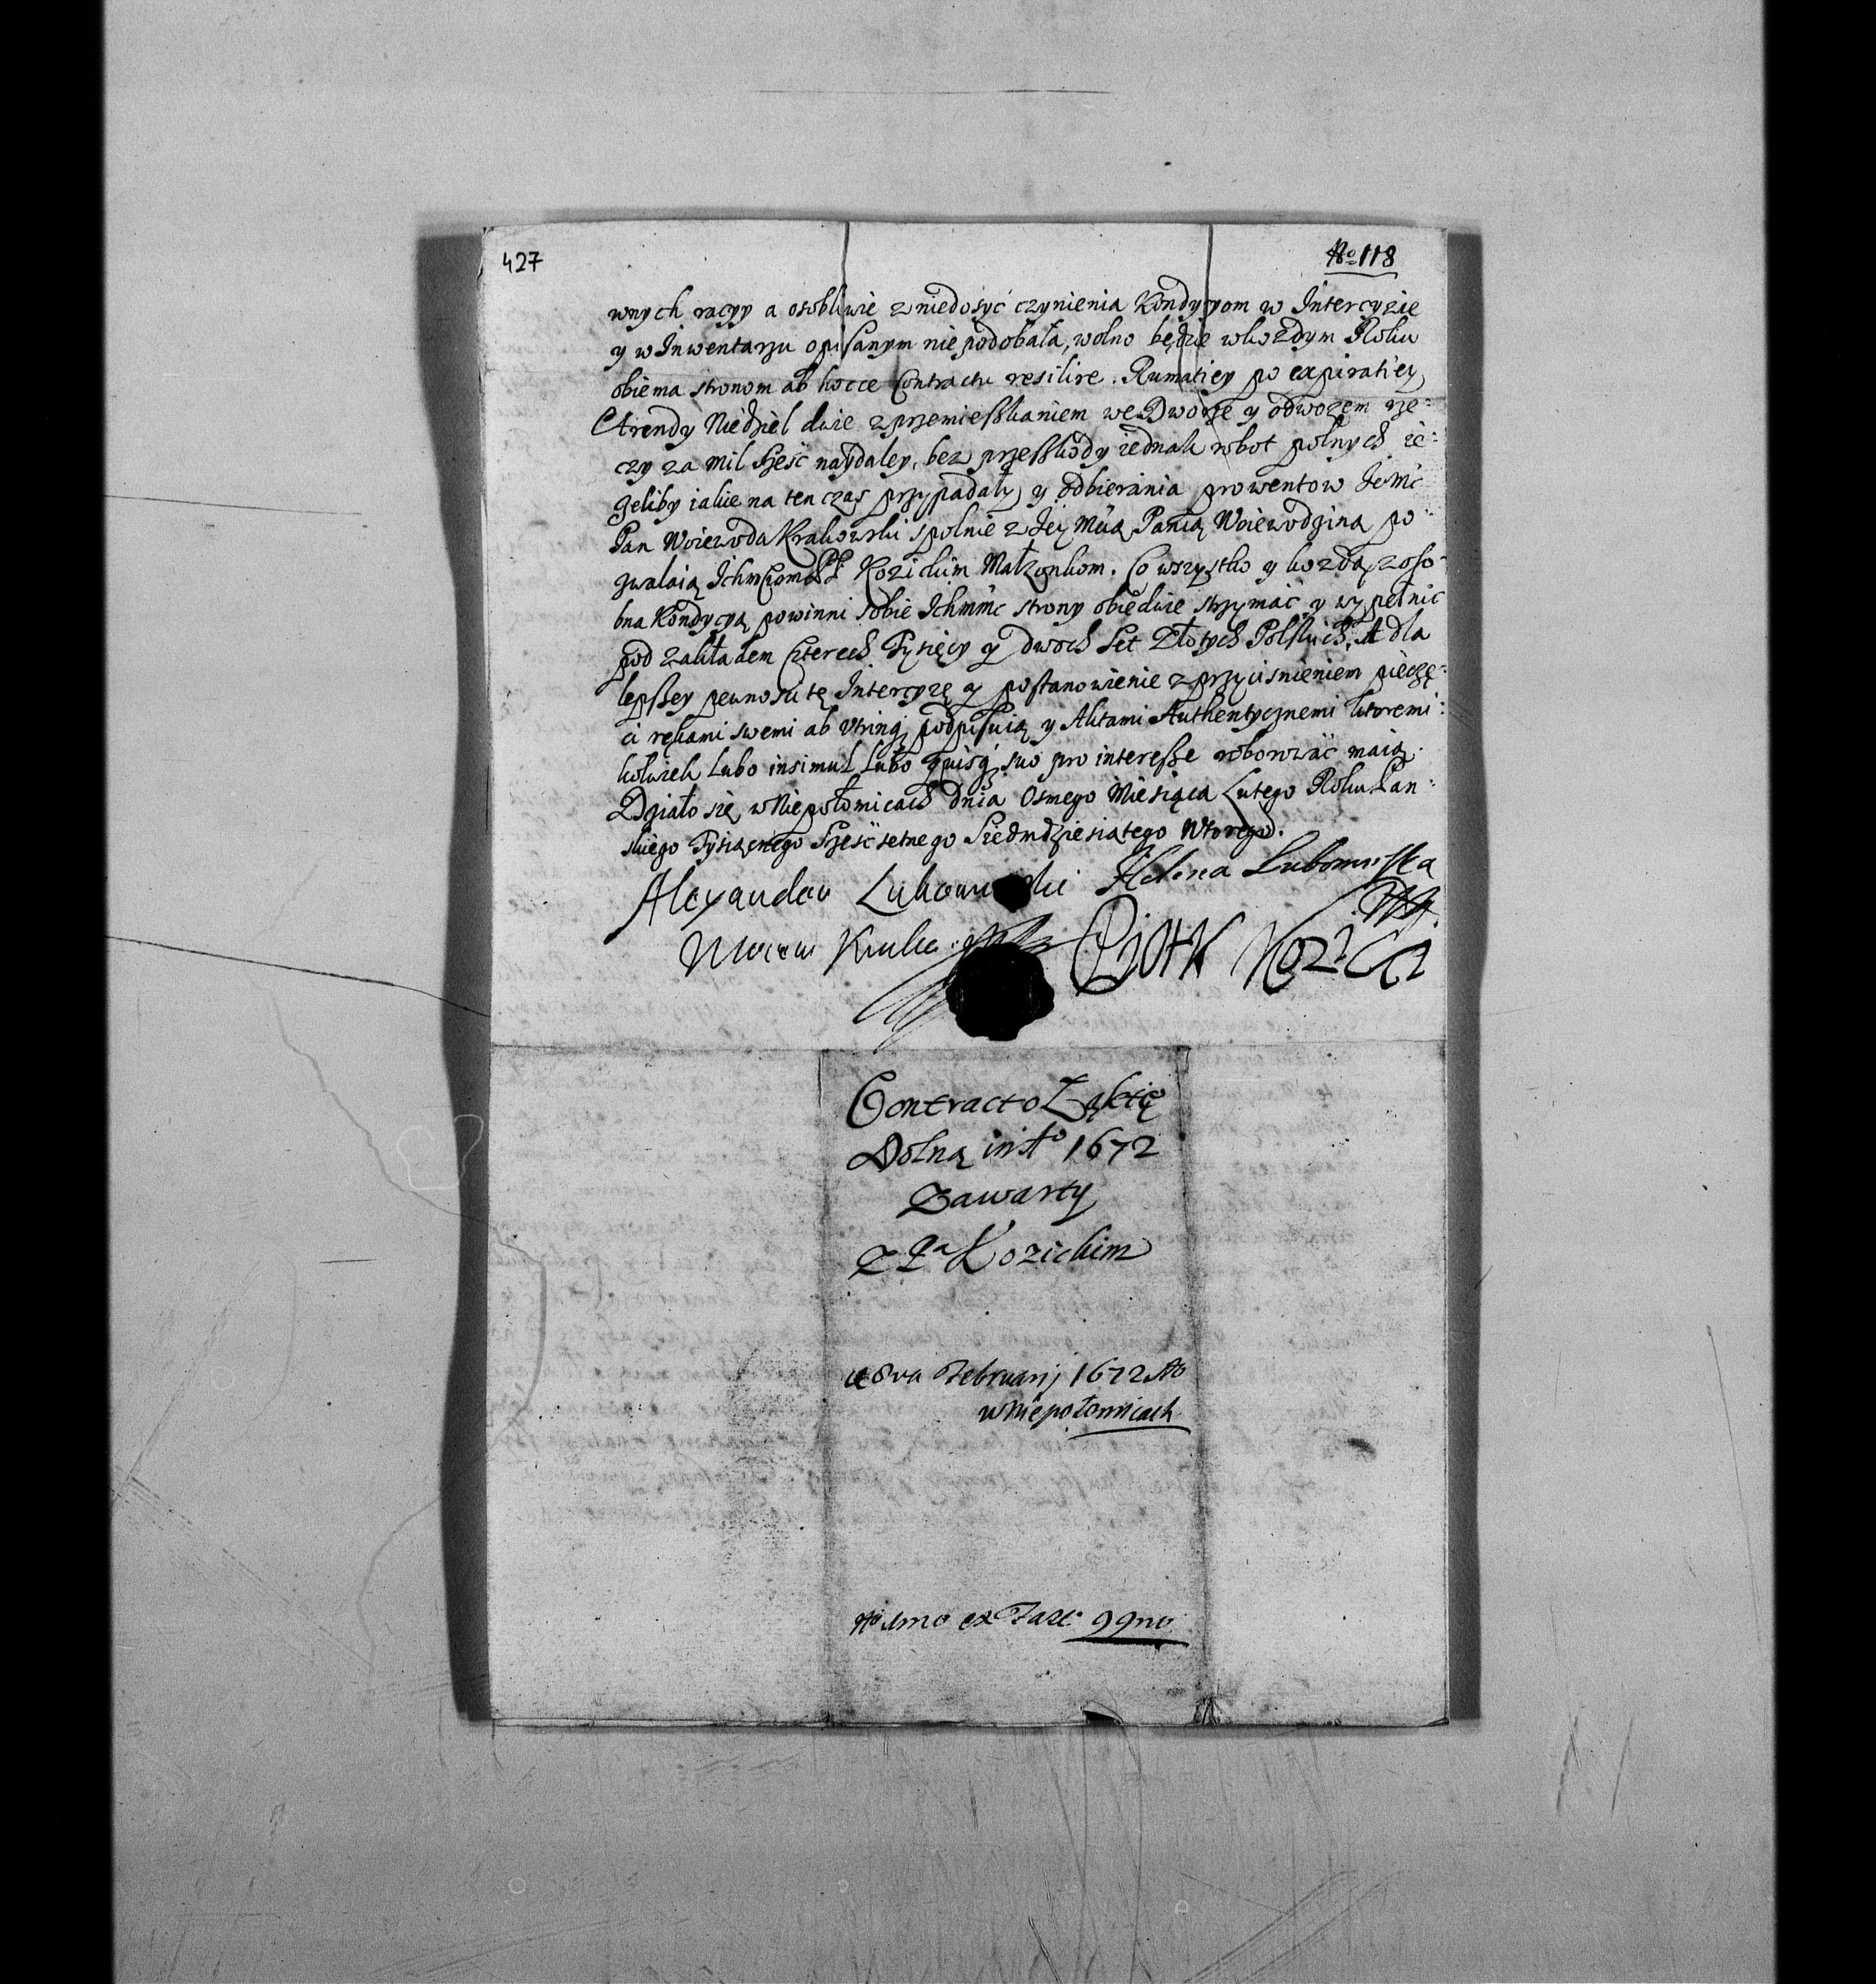 427
No 118
wnych racyy a osobliwie z niedosyć czynienia Kondycyom w Intercyzie
y w Inwentarzu opisanym nie podobała, wolno będzie w kozdym Roku
obiema stronom ab hocce Contractu resilire. Rumatiey po expiratiey
Arendy Niedziel dwie z przemieszkaniem we Dworze y odwozem rze-
czy za mil sześć naydaley, bez przeszkody iednak robot polnych ie-
zeliby iakie na ten czas przypadały y odbierania prowentow Ie Mć
Pan Woiewoda Krakowski spolnie z Ieią Mcią Panią Woiewodziną po
zwalaią Ichmciom PP Kozickim Małzonkom. Co wszystko y kozdą z oso-
bna Kondycyą powinni sobie Ichmmć strony obiedwie strzymać y wypełnic
pod zakładem Czterech Tysięcy y dwoch set Złotych Polskich, A dla
lepszey pewnosci tę Intercyzę y postanowienie z przycisnieniem pieczę-
ci rękami swemi ab vtrinq podpisuią y Aktami Authentycznemi ktoremi-
kolwiek lubo insimul lubo quisq suo pro interesse roborować maią.
Działo się w Niepołomicach dnia Osmego Miesiąca Lutego Roku Pan-
skiego Tysiącnego Szescsetnego Siedmdziesiątego Wtorego.
Alexander Lubomirski Helena Lubomirska
Piotr Kozicki
Contract o Łąktę
Dolną in Ao 1672
Zawarty
Z Pa Kozickim
de 8va Februarij 1672 Ao
w Niepołomicach
No 4mo ex Fasc. 99no